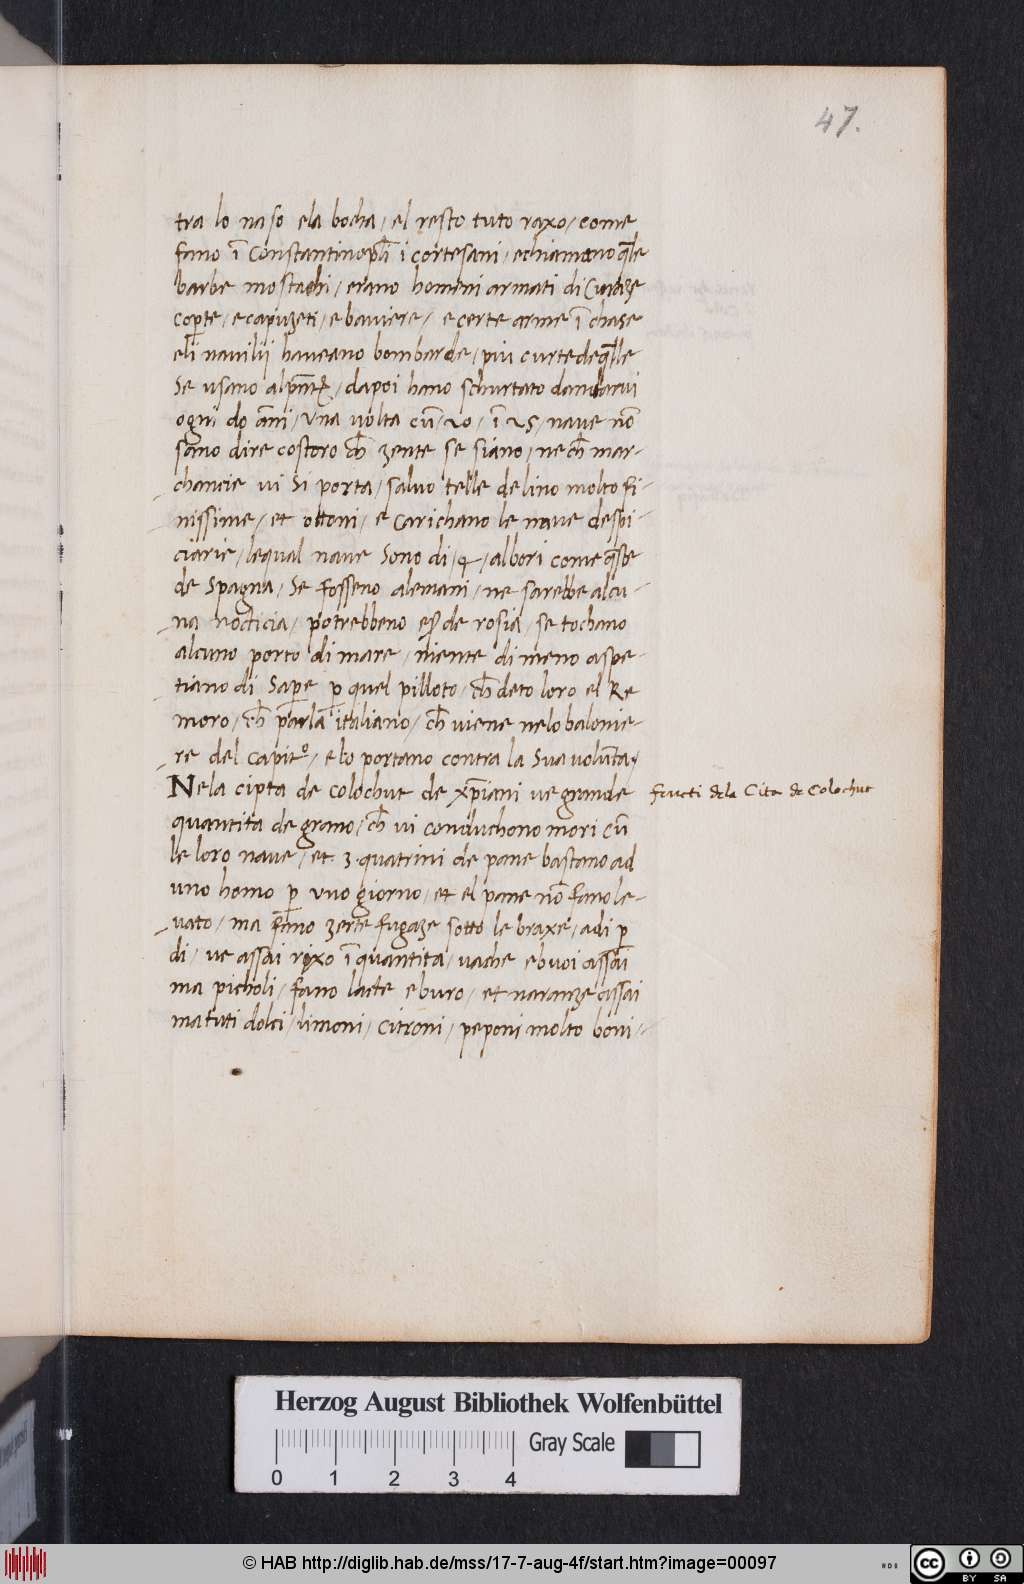 47.
tra lo naso ela bocha / el resto tuto raxo / come
fano ī Constantinopl̄i i cortesani / echiamano q̄lle
barbe mostachi / erano homeni armati di Curaze
cop̄te / e capuzeti / e baviere / e certe arme ī chase
eli navilii haveano bombarde / piu curte de q̄lle
Se usano al p̄nte / dapoi hano schurtato d andarvi
ogni do āni / Una volta cū / 20 / ī 25 / nave nō
sano dire costoro ch̄ zente se siano / ne ch̄ mar-
chancie vi Si porta / salvo telle de lino molto fi-
nissime / et ottoni / e Carichano le nave de spi-
ciarie / lequal nave Sono di / 4 / albori come q̄ste
de Spagna / Se fosseno alemani / ne sarebbe alcu-
na noticia / potrebbeno eſſ de rosia / se tochano
alcuno porto di mare / niente di meno aspe-
tiano di Sap̄e p̱ quel pilloto / ch̄ deto loro el Re
moro / ch̄ parla italiano / ch̄ viene nelo balonie-
re del capit⁰ / e lo portano contra la Sua volūta /
Nela cipta de colochut de xp̄iani ve grande
quantita de grano / ch̄ vi conduchono mori cū
le loro nave / et 3 · quatrini de pane bastano ad
uno homo p̱ vno giorno / et el pane nō fano le-
vato / ma f̄ano zerte fugaze sotto le braxe / adi p̱
di / ve assai rixo ī quantita / vache e buoi assai
ma picholi / fano lacte e buro / et naranze assai
ma tuti dolci / limoni / citroni / peponi molto boni /
fructi dela Cita de Colochut
Herzog August Bibliothek Wolfenbüttel
Gray Scale
0 1 2 3 4
© HAB http://diglib.hab.de/mss/17-7-aug-4f/start.htm?image=00097
cc BY SA